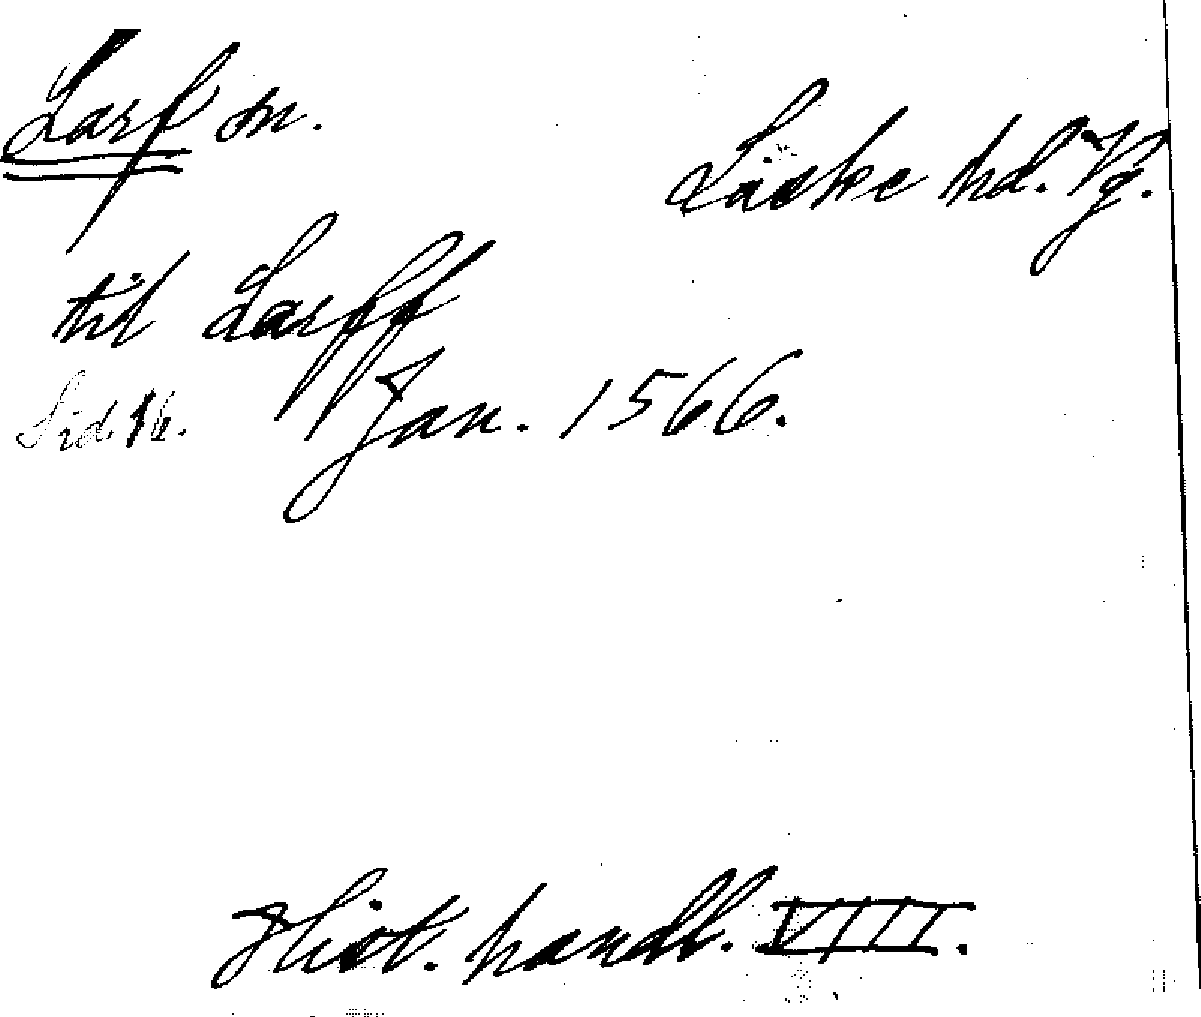 Larf sn.
Laske hd. Vg.
till Larff
Sid. 16. Jan. 1566.
Hist. handl. VIII.